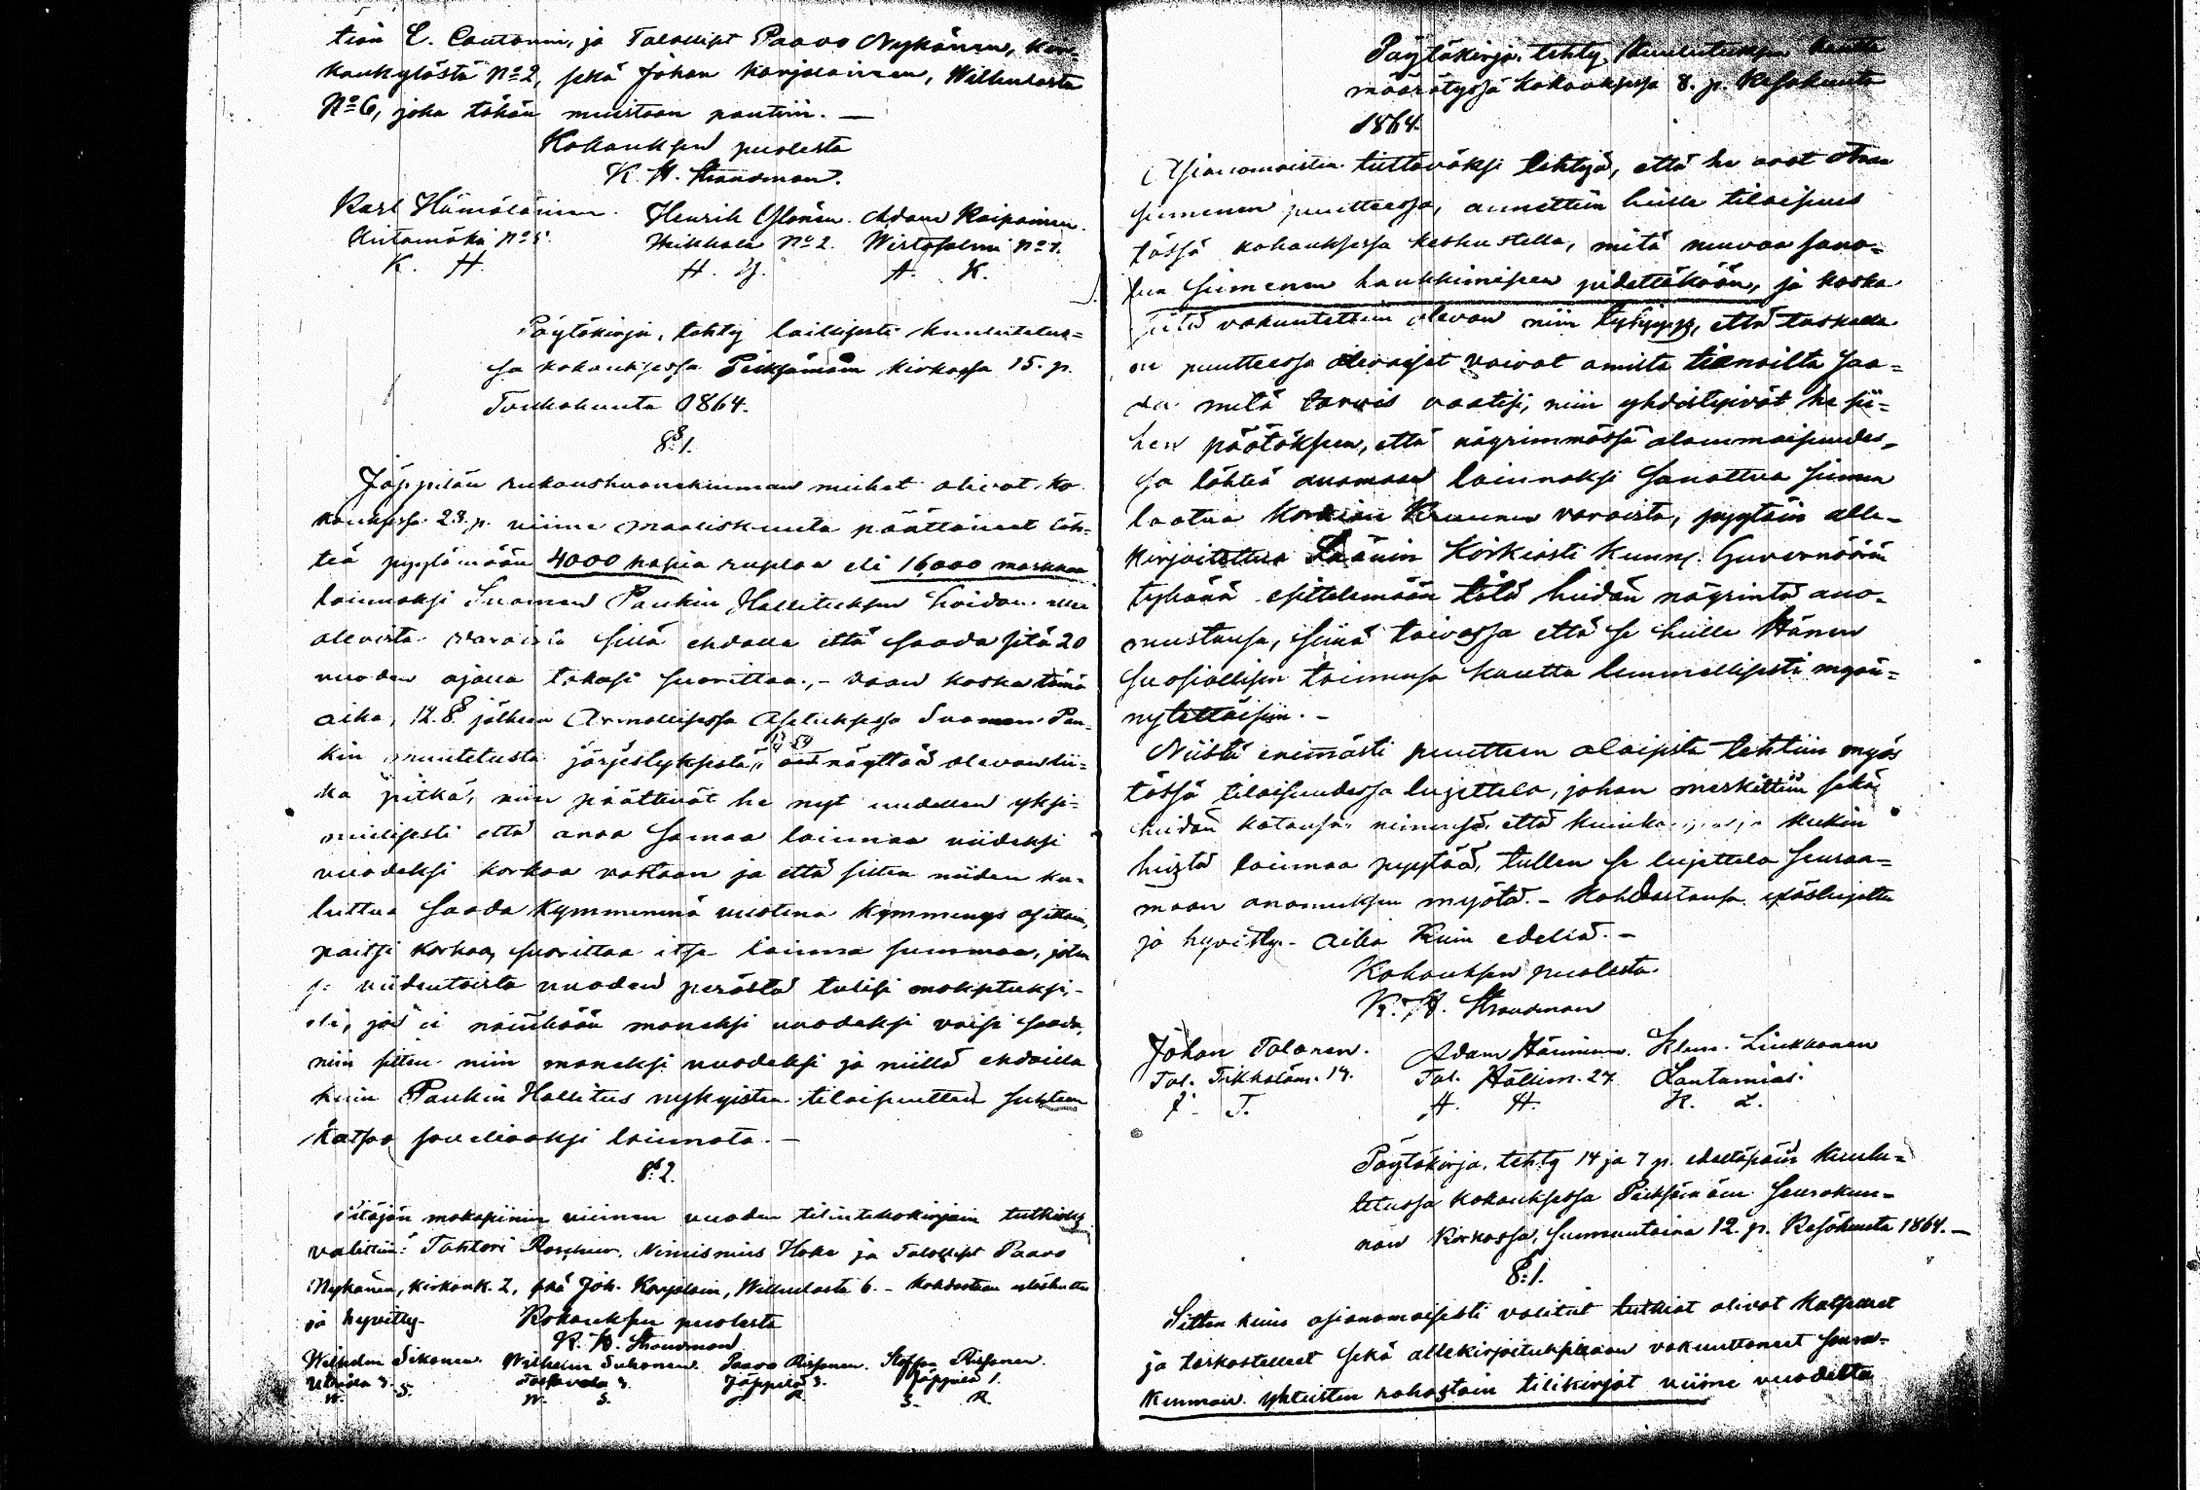 tiön C. Cantonin, ja Talollist Paavo Nykänen, Kir-
konkylästä No 2, sekä Johan Karjalainen, Wilhulasta
No 6, joka tähän muistoon pantiin. —
Kokouksen puolesta
K. H. Strandman.
Karl Hämäläinen. Henrik Ylönen. Adam Kaipainen.
Hiitamäki No 5. Heikkala No 2. Wirtasalmi No 1.
K. H. H. Y. A. K.
Pöytäkirja, tehty laillisesti kuulutetus-
sa kokouksessa Pieksämäen kirkossa 15. p.
Toukokuuta 1864.
§ 1.
Jäppilän rukoushuonekunnan miehet olivat ko-
kouksessa 28. p. viime maaliskuuta päättäneet läh-
teä pyytämään 4000 hopia ruplaa eli 16,000 markkaa
lainnaksi Suomen Pankin Hallituksen hoidon alla
olevista varoista sillä ehdolla että saada sitä 20
vuoden ajalla takasi suorittaa, - vaan koska tämä
aika, 12. § jälkeen Armollisessa Asetuksessa Suomen Pan-
kin muutetusta järjestyksestä, näyttää olevan lii-
ka pitkä, niin päättivät he nyt uudellen yksi-
mielisesti että anoa samaa lainnaa viideksi
vuodeksi korkoa vastaan ja että sitten niiden ku-
luttua saada kymmenenä vuotena kymmenys osittain,
paitsi korkoa, suorittaa itse lainna summaa, joten
se viidentoista vuoden perästä tulisi maksetuksi, -
eli, jos ei näinkään moneksi vuodeksi voisi saada,
niin sitten niin moneksi vuodeksi ja niillä ehdoilla
kuin Pankin Hallitus nykyisten tilaisuutten suhteen
katsoo soveliaaksi lainnata. —
§ 2.
Pitäjän makasiinin viimen vuoden tilintekokirjain tutkioiksi
valittiin: Tohtori Roschier, Nimismies Hoke ja Talollist Paavo
Nykänen, kirkonk. 2, sekä Joh. Karjalain, Wilhulasta 6. - Kohdastaan ylösluettu
ja hyvitty. Kokouksen puolesta
K. H. Strandman
Wilhelm Sikanen. Wilhelm Suhonen. Paavo Rissonen. Staffan Rissanen.
Utriala 3. 3. Jäppilä 3. Jäppilä 1.
W. S. W. S. P. R. S. R.
Pöytäkirja, tehty kuulutuksen kautta
määrätyssä kokouksessa 8. p. Kesäkuuta
1864.
Asianomaisten tiettäväksi tehtyä, että he ovat
siemenen puutteessa, annettiin heille tilaisuus
tässä kokouksessa keskustella, mitä neuvoa sano-
tun siemenen hankkimiseen pidettäköön, ja koska
vakuutettiin olevan niin tyhjyys, että tuskalla
on puutteessa olevaiset voivat omilta tienoilta saa-
da mitä tarvis vaatisi, niin yhdistyivät he sii-
hen päätökseen, että nöyrimmässä alammaisuudes-
sa lähteä anomaan lainnaksi sanottua siemen
laatua Korkian Kruunun varoista, pyytäin alle-
kirjoitettua Läänin Korkiasti Kunn. Guvernöörin
tykönä esittelemään tätä heidän nöyrintä ano-
mustansa, siinä toivossa että se heille Hänen
suosiollisen toimensa kautta lemmellisesti myön-
nytettäisiin. -
Niistä enimästi puutteen alaisista tehtiin myös
tässä tilaisuudessa lujettelo, johon merkittiin sekä
heidän kotonsa, nimensä, että kuinka paljo kukin
heistä lainnaa pyytää, tullen se lujettelo seuraa-
maan anomuksen myötä. - Kohdastansa ylöslujettu
ja hyvitty. - Aika kuin edellä. -
Kokouksen puolesta.
K. H. Strandman
Johan Tolonen. Adam Hänninen. Klem. Liukkonen
Tal. Tikkaläm. 14. Tal. Hällim. 27. Lautamies.
J. T. A. H. K. L.
Pöytäkirja, tehty 14 ja 7 p. edeltäpäin kuulu-
tetussa kokouksessa Pieksämäen seurakun-
nan kirkossa, sunnuntaina 12. p. Kesäkuuta 1864. —
§ 1.
Sitten kuin asianomaisesti valitut tutkiat olivat katselleet
ja tarkastelleet sekä allekirjoituksillaan vakuuttaneet seura-
kunnan yhteisten rahastoin tilikirjat viime vuodelta